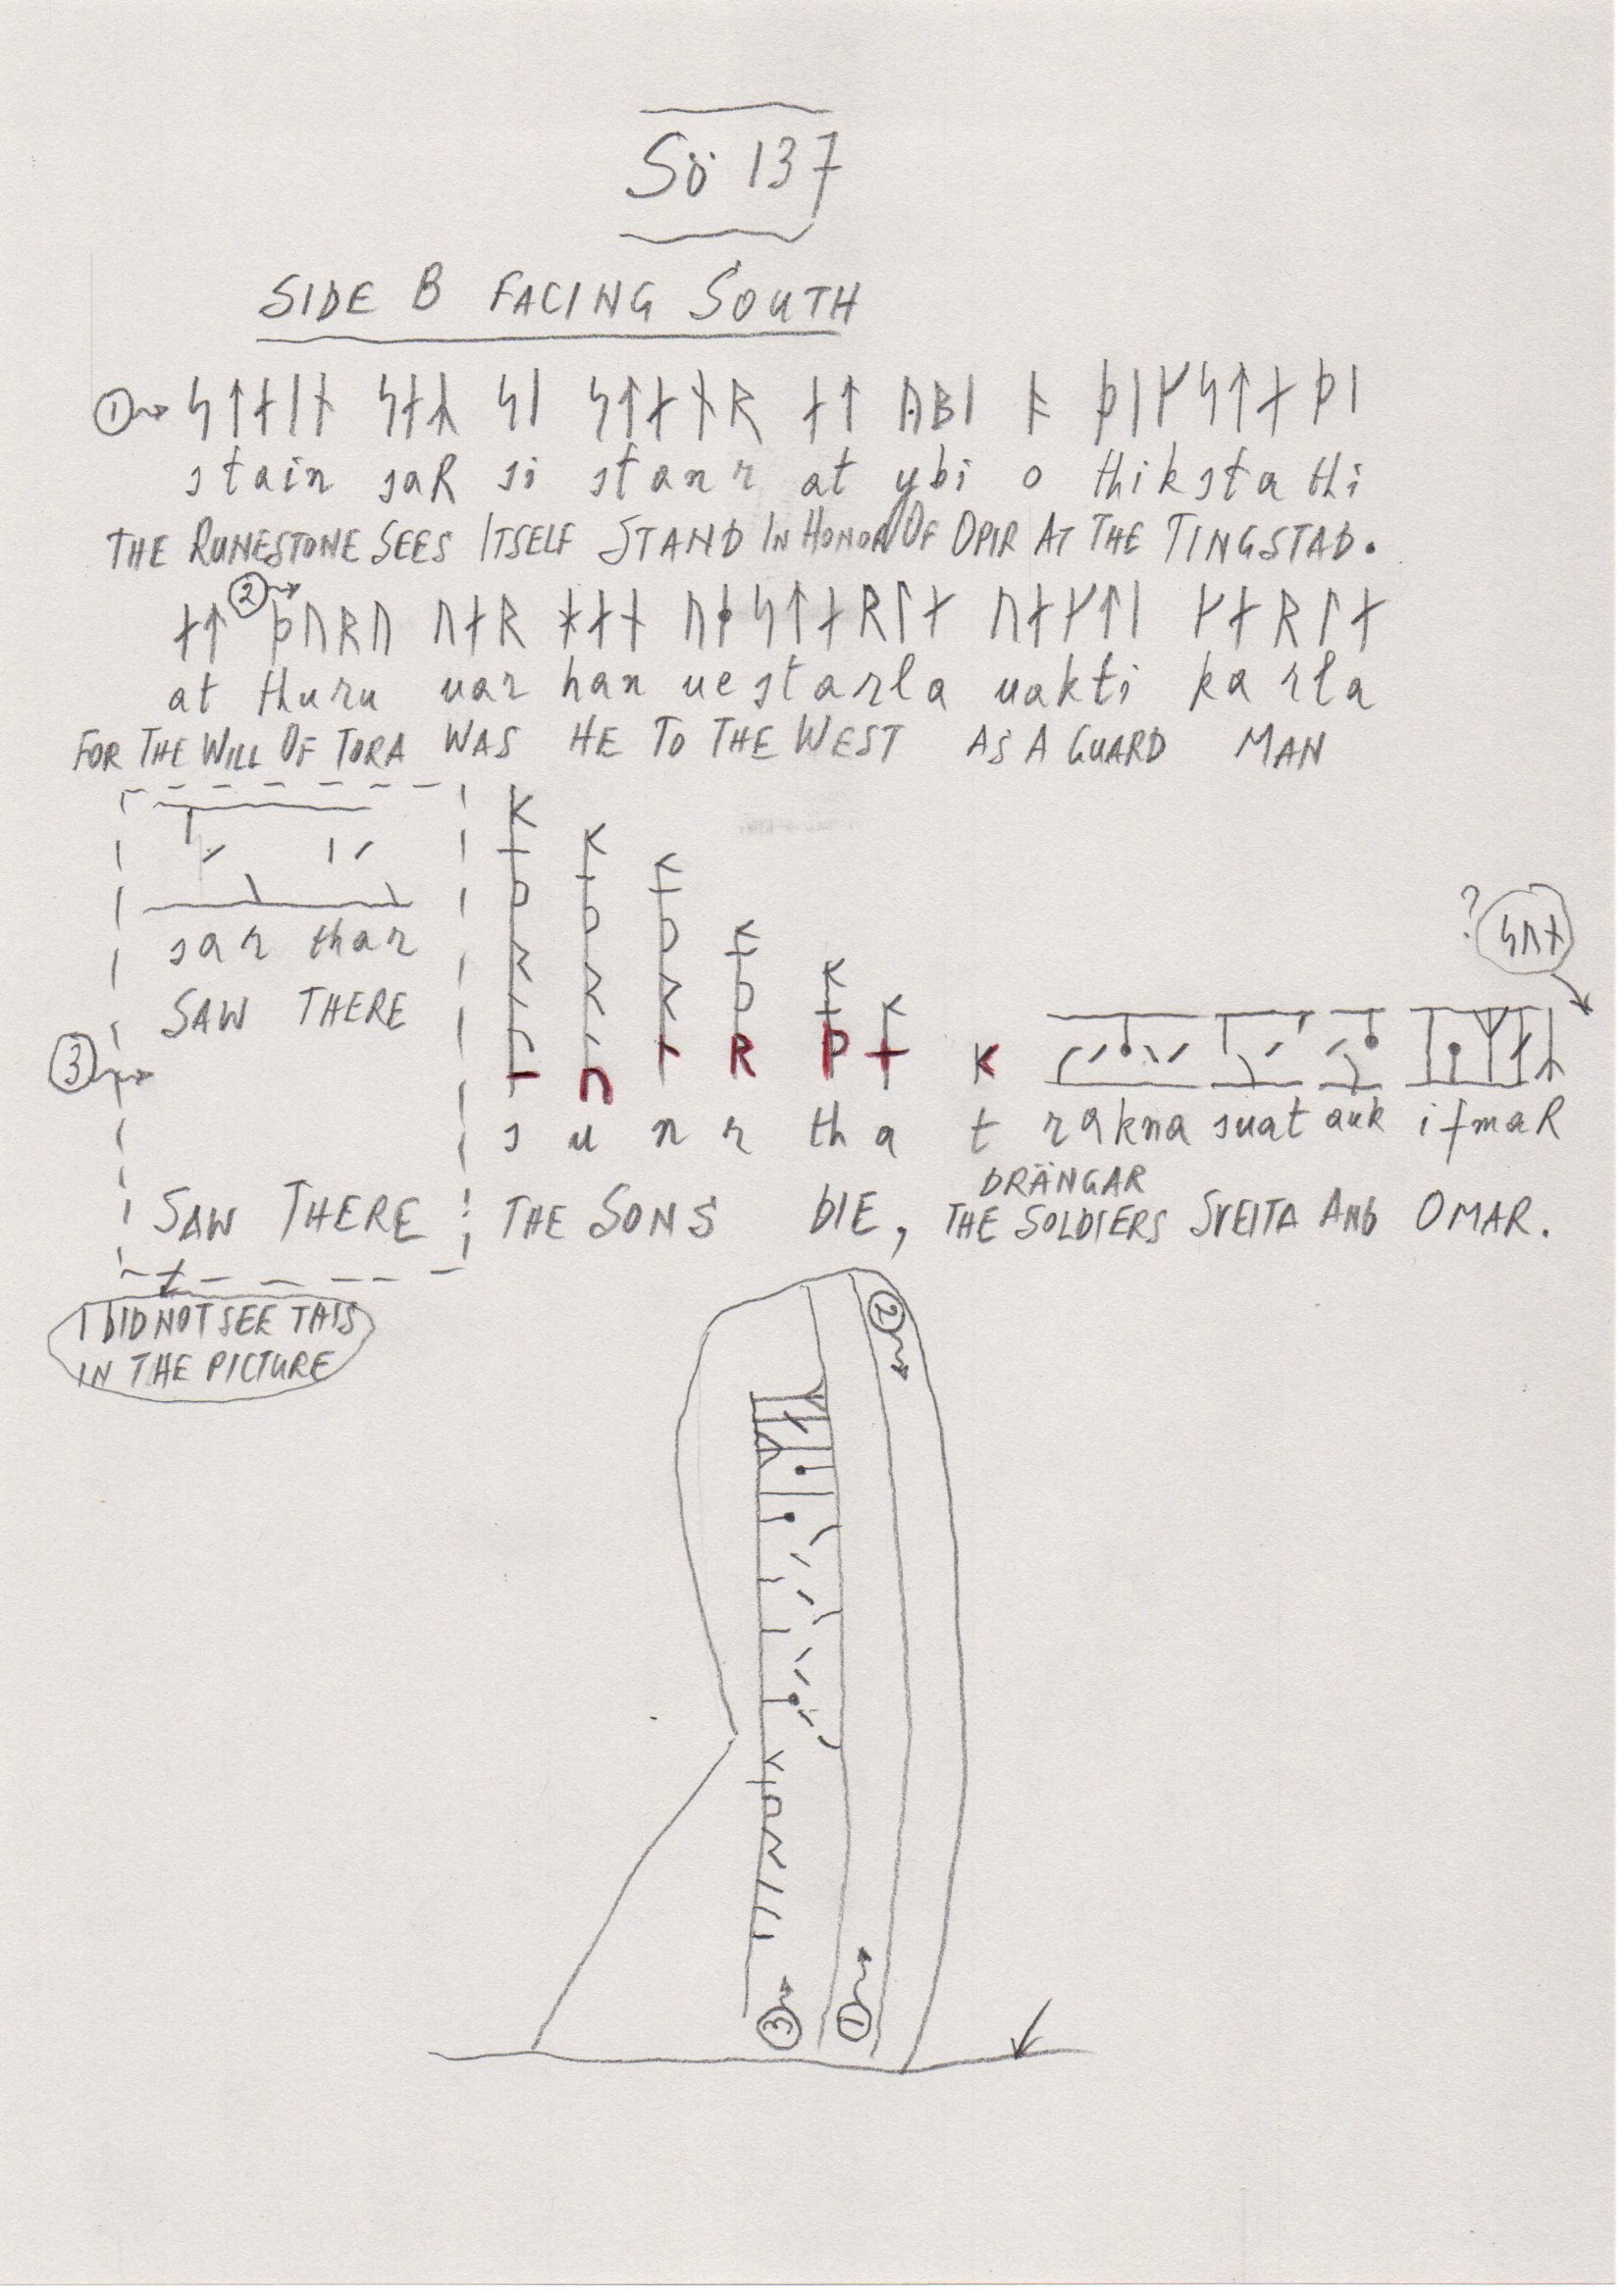 Sö 137
SIDE B FACING SOUTH
① ᛋᛏᛅᛁᚾ ᛋᛅᛦ ᛋᛁ ᛋᛏᛅᚾᚱ ᛅᛏ ᚤᛒᛁ ᚬ ᚦᛁᚴᛋᛏᛅ ᚦᛁ
stain saR si stanr at ybi o thiksta thi
THE RUNESTONE SEES ITSELF STAND IN HONOR OF ÖPIR AT THE TINGSTAD.
ᛅᛏ ② ᚦᚢᚱᚢ ᚢᛅᚱ ᚼᛅᚾ ᚢᛂᛋᛏᛅᚱᛚᛅ ᚢᛅᚴᛏᛁ ᚴᛅᚱᛚᛅ
at thuru uar han uestarla uakti karla
FOR THE WILL OF TORA WAS HE TO THE WEST AS A GUARD MAN
sar thar
SAW THERE
? ᛋᚢᛅ
③
s u n r th a t rakna suat auk ifmaR
DRÄNGAR
SAW THERE THE SONS DIE, THE SOLDIERS SVEITA AND OMAR.
I DID NOT SEE THIS
IN THE PICTURE
②
③ ①